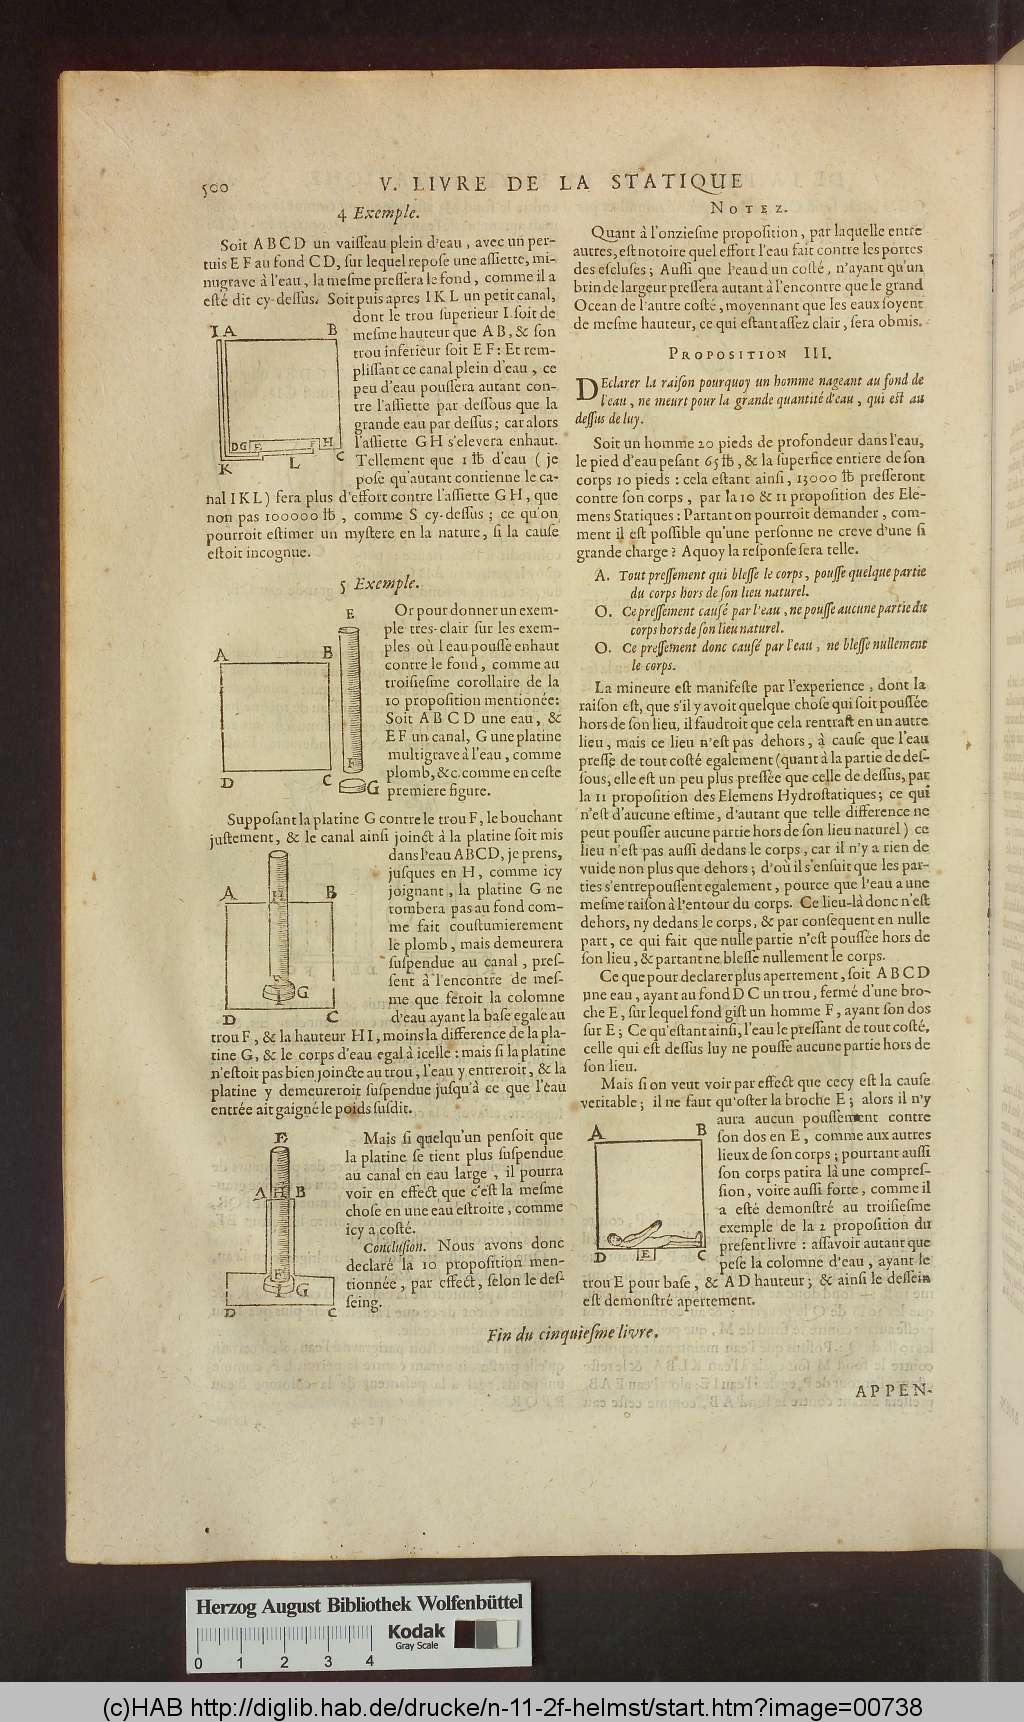 500
V. LIVRE DE LA STATIQUE
4 Exemple.
Soit A B C D un vaiſſeau plein d'eau, avec un per-
tuis E F au fond C D, ſur lequel repoſe une aſſiette, mi-
nugrave à l'eau, la meſme preſſera le fond, comme il a
eſté dit cy-deſſus. Soit puis apres I K L un petit canal,
dont le trou ſuperieur I ſoit de
meſme hauteur que A B, & ſon
trou inferieur ſoit E F: Et rem-
pliſſant ce canal plein d'eau, ce
peu d'eau pouſſera autant con-
tre l'aſſiette par deſſous que la
grande eau par deſſus; car alors
l'aſſiette G H s'elevera enhaut.
Tellement que 1 ℔ d'eau ( je
poſe qu'autant contienne le ca-
nal I K L) ſera plus d'effort contre l'aſſiette G H, que
non pas 100000 ℔, comme S cy-deſſus; ce qu'on
pourroit eſtimer un myſtere en la nature, ſi la cauſe
eſtoit incognue.
I A B
D G E F H
K L C
5 Exemple.
Or pour donner un exem-
ple tres-clair ſur les exem-
ples où l'eau pouſſe enhaut
contre le fond, comme au
troiſieſme corollaire de la
10 propoſition mentionée:
Soit A B C D une eau, &
E F un canal, G une platine
multigrave à l'eau, comme
plomb, &c. comme en ceſte
premiere figure.
E
A B
F
D C G
Suppoſant la platine G contre le trou F, le bouchant
juſtement, & le canal ainſi joinct à la platine ſoit mis
dans l'eau ABCD, je prens,
juſques en H, comme icy
joignant, la platine G ne
tombera pas au fond com-
me fait couſtumierement
le plomb, mais demeurera
ſuſpendue au canal, preſ-
ſent à l'encontre de meſ-
me que feroit la colomne
d'eau ayant la baſe egale au
trou F, & la hauteur H I, moins la difference de la pla-
tine G, & le corps d'eau egal à icelle: mais ſi la platine
n'eſtoit pas bien joincte au trou, l'eau y entreroit, & la
platine y demeureroit ſuſpendue juſqu'à ce que l'eau
entrée ait gaigné le poids ſuſdit.
A B
H
F
G
I
D C
Mais ſi quelqu'un penſoit que
la platine ſe tient plus ſuſpendue
au canal en eau large, il pourra
voir en effect que c'eſt la meſme
choſe en une eau eſtroite, comme
icy a coſté.
Concluſion. Nous avons donc
declaré la 10 propoſition men-
tionnée, par effect, ſelon le deſ-
ſeing.
E
A H B
F
I G
D C
NOTEZ.
Quant à l'onzieſme propoſition, par laquelle entre
autres, eſt notoire quel effort l'eau fait contre les portes
des eſcluſes; Auſſi que l'eau d un coſté, n'ayant qu'un
brin de largeur preſſera autant à l'encontre que le grand
Ocean de l'autre coſté, moyennant que les eaux ſoyent
de meſme hauteur, ce qui eſtant aſſez clair, ſera obmis.
PROPOSITION III.
DEclarer la raiſon pourquoy un homme nageant au fond de
l'eau, ne meurt pour la grande quantité d'eau, qui eſt au
deſſus de luy.
Soit un homme 20 pieds de profondeur dans l'eau,
le pied d'eau peſant 65 ℔, & la ſuperfice entiere de ſon
corps 10 pieds: cela eſtant ainſi, 13000 ℔ preſſeront
contre ſon corps, par la 10 & 11 propoſition des Ele-
mens Statiques: Partant on pourroit demander, com-
ment il eſt poſſible qu'une perſonne ne creve d'une ſi
grande charge? A quoy la reſponſe ſera telle.
A. Tout preſſement qui bleſſe le corps, pouſſe quelque partie
du corps hors de ſon lieu naturel.
O. Ce preſſement cauſé par l'eau, ne pouſſe aucune partie du
corps hors de ſon lieu naturel.
O. Ce preſſement donc cauſé par l'eau, ne bleſſe nullement
le corps.
La mineure eſt manifeſte par l'experience, dont la
raiſon eſt, que s'il y avoit quelque choſe qui ſoit pouſſée
hors de ſon lieu, il faudroit que cela rentraſt en un autre
lieu, mais ce lieu n'eſt pas dehors, à cauſe que l'eau
preſſe de tout coſté egalement (quant à la partie de deſ-
ſous, elle eſt un peu plus preſſée que celle de deſſus, par
la 11 propoſition des Elemens Hydroſtatiques; ce qui
n'eſt d'aucune eſtime, d'autant que telle difference ne
peut pouſſer aucune partie hors de ſon lieu naturel) ce
lieu n'eſt pas auſſi dedans le corps, car il n'y a rien de
vuide non plus que dehors; d'où il s'enſuit que les par-
ties s'entrepouſſent egalement, pource que l'eau a une
meſme raiſon à l'entour du corps. Ce lieu-là donc n'eſt
dehors, ny dedans le corps, & par conſequent en nulle
part, ce qui fait que nulle partie n'eſt pouſſée hors de
ſon lieu, & partant ne bleſſe nullement le corps.
Ce que pour declarer plus apertement, ſoit A B C D
une eau, ayant au fond D C un trou, fermé d'une bro-
che E, ſur lequel fond giſt un homme F, ayant ſon dos
ſur E; Ce qu'eſtant ainſi, l'eau le preſſant de tout coſté,
celle qui eſt deſſus luy ne pouſſe aucune partie hors de
ſon lieu.
Mais ſi on veut voir par effect que cecy eſt la cauſe
veritable; il ne faut qu'oſter la broche E; alors il n'y
aura aucun pouſſement contre
ſon dos en E, comme aux autres
lieux de ſon corps; pourtant auſſi
ſon corps patira là une compreſ-
ſion, voire auſſi forte, comme il
a eſté demonſtré au troiſieſme
exemple de la 2 propoſition du
preſent livre: aſſavoir autant que
peſe la colomne d'eau, ayant le
trou E pour baſe, & A D hauteur; & ainſi le deſſein
eſt demonſtré apertement.
A B
D E C
Fin du cinquieſme livre.
APPEN-
Herzog August Bibliothek Wolfenbüttel
Kodak
Gray Scale
0 1 2 3 4
(c)HAB http://diglib.hab.de/drucke/n-11-2f-helmst/start.htm?image=00738